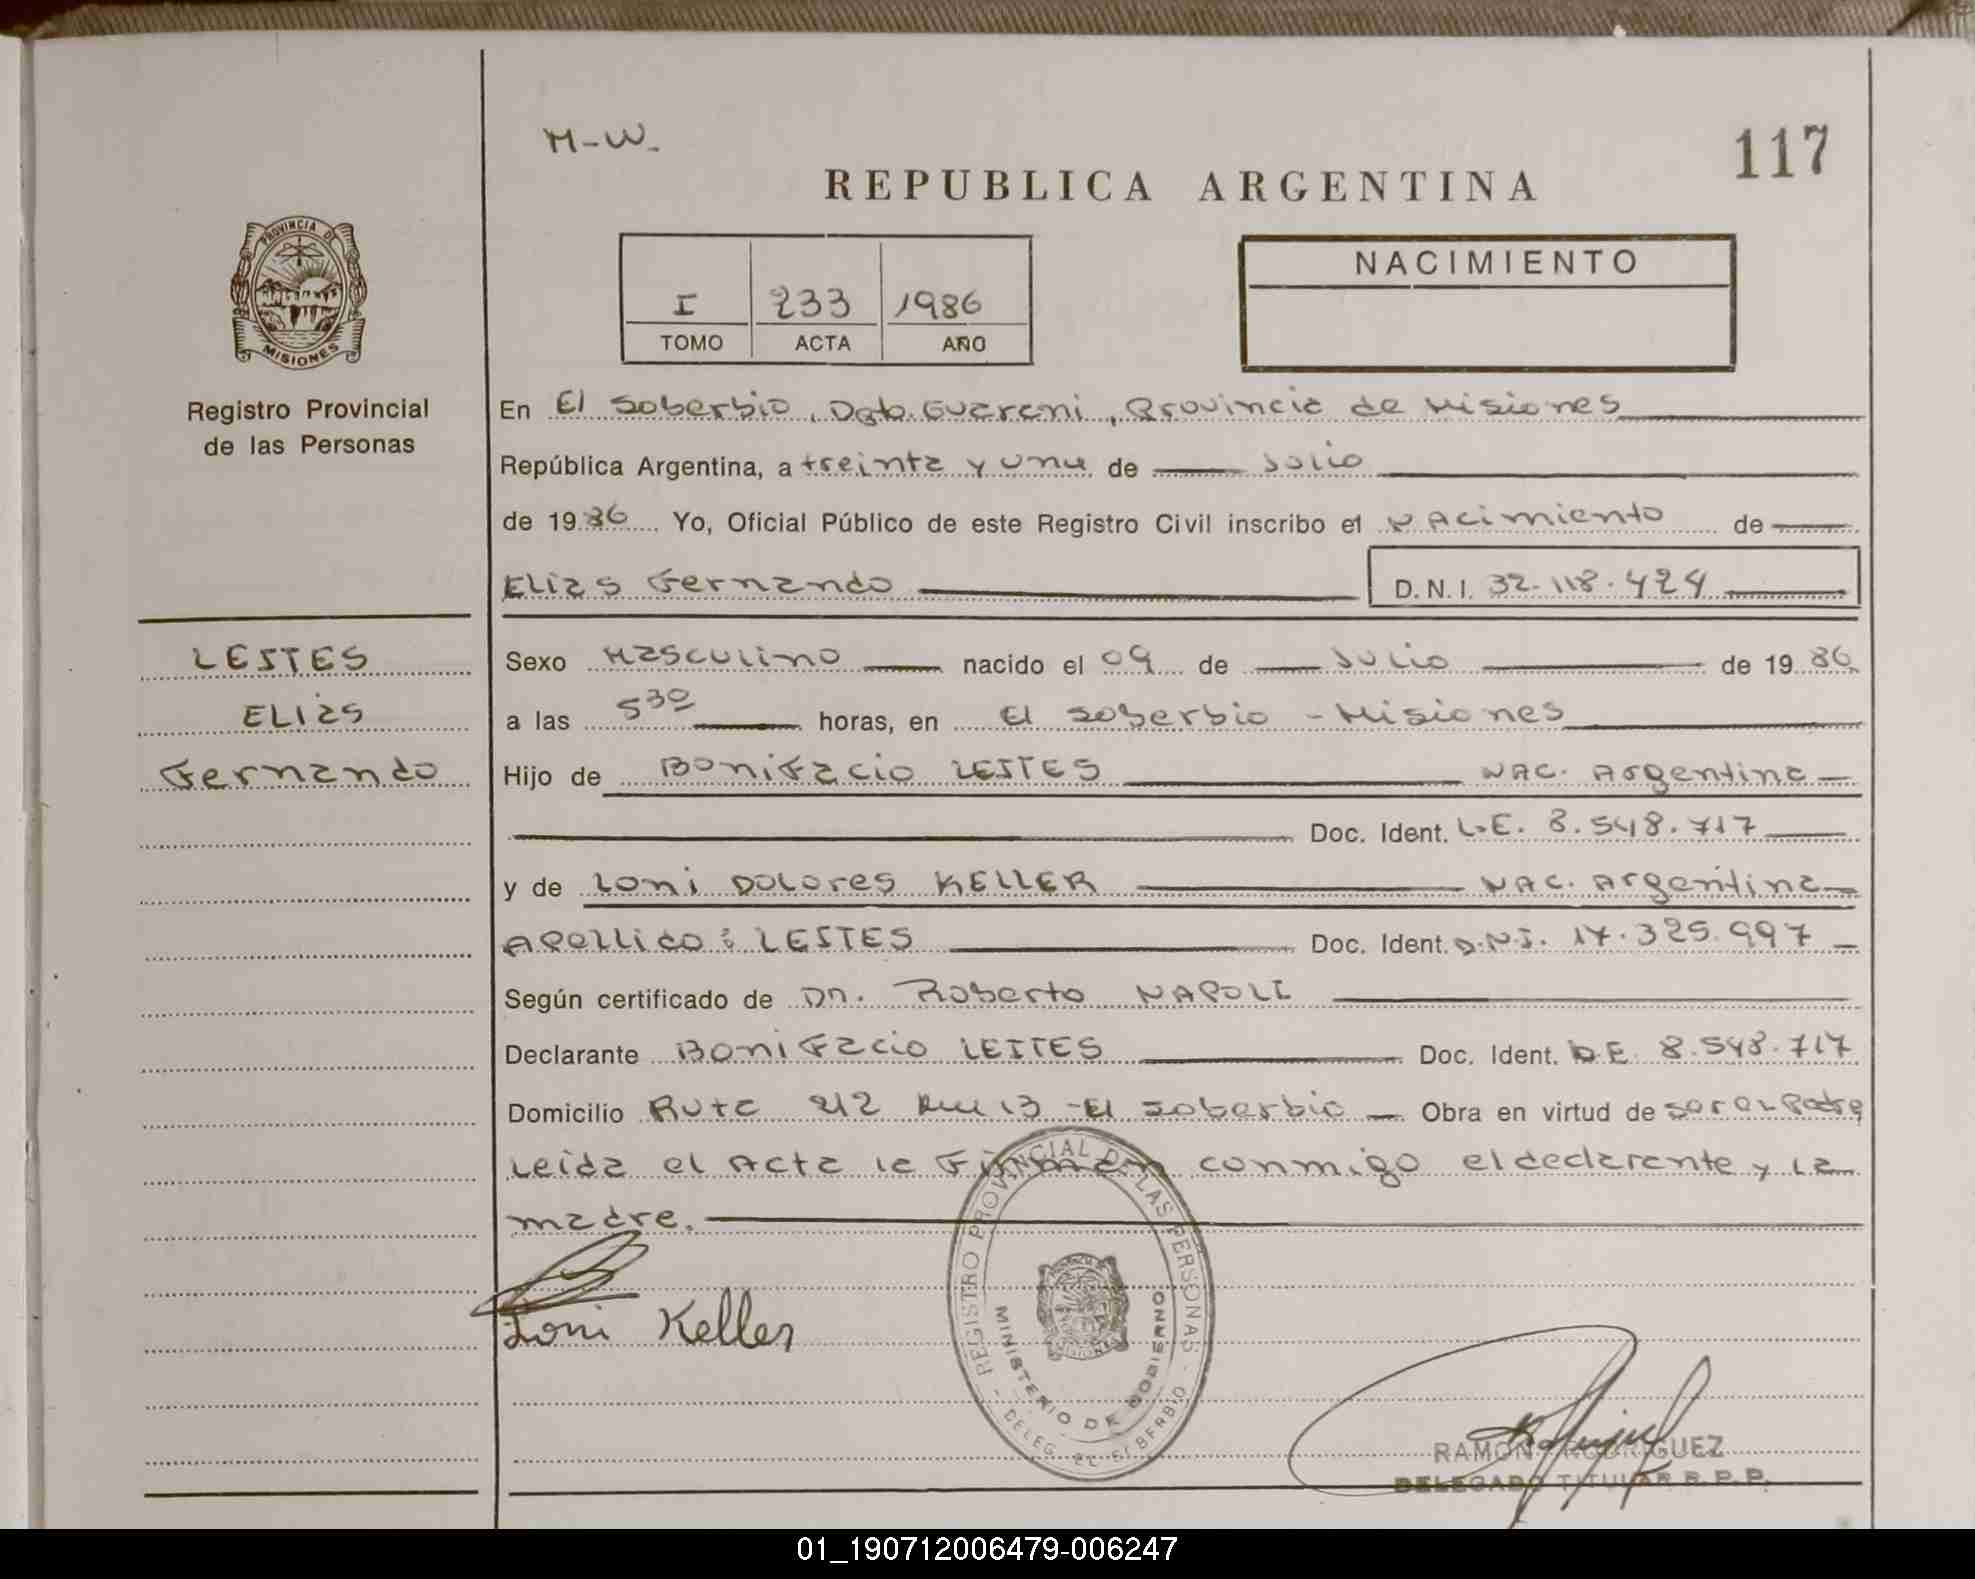 M-W.
117
REPUBLICA ARGENTINA
PROVINCIA DE
MISIONES
I 233 1986
TOMO ACTA AÑO
NACIMIENTO
Registro Provincial
de las Personas
En El Soberbio, Dpto. Guarani, Provincia de Misiones
República Argentina, a treinta y uno de Julio
de 1986 Yo, Oficial Público de este Registro Civil inscribo el Nacimiento de
Elias Fernando D.N.I. 32.118.424
LEITES
ELias
Fernando
Sexo Masculino nacido el 09 de Julio de 1986
a las 5³⁰ horas, en El Soberbio - Misiones
Hijo de Bonifacio LEITES NAC. Argentina
Doc. Ident. L.E. 8.548.717
y de Loni Dolores KELLER NAC. Argentina
Apellido: LEITES Doc. Ident. D.N.I. 17.325.997
Según certificado de Dn. Roberto NAPOLI
Declarante Bonifacio LEITES Doc. Ident. L.E. 8.548.717
Domicilio Ruta 212 Km 13 - El Soberbio Obra en virtud de ser el Padre
Leida el Acta la Firman conmigo el declarante y la
madre.
Loni Keller
REGISTRO PROVINCIAL DE LAS PERSONAS
MINISTERIO DE GOBIERNO
DELEG. EL SOBERBIO
RAMON RODRIGUEZ
DELEGADO TITULAR R.P.P.
01_190712006479-006247